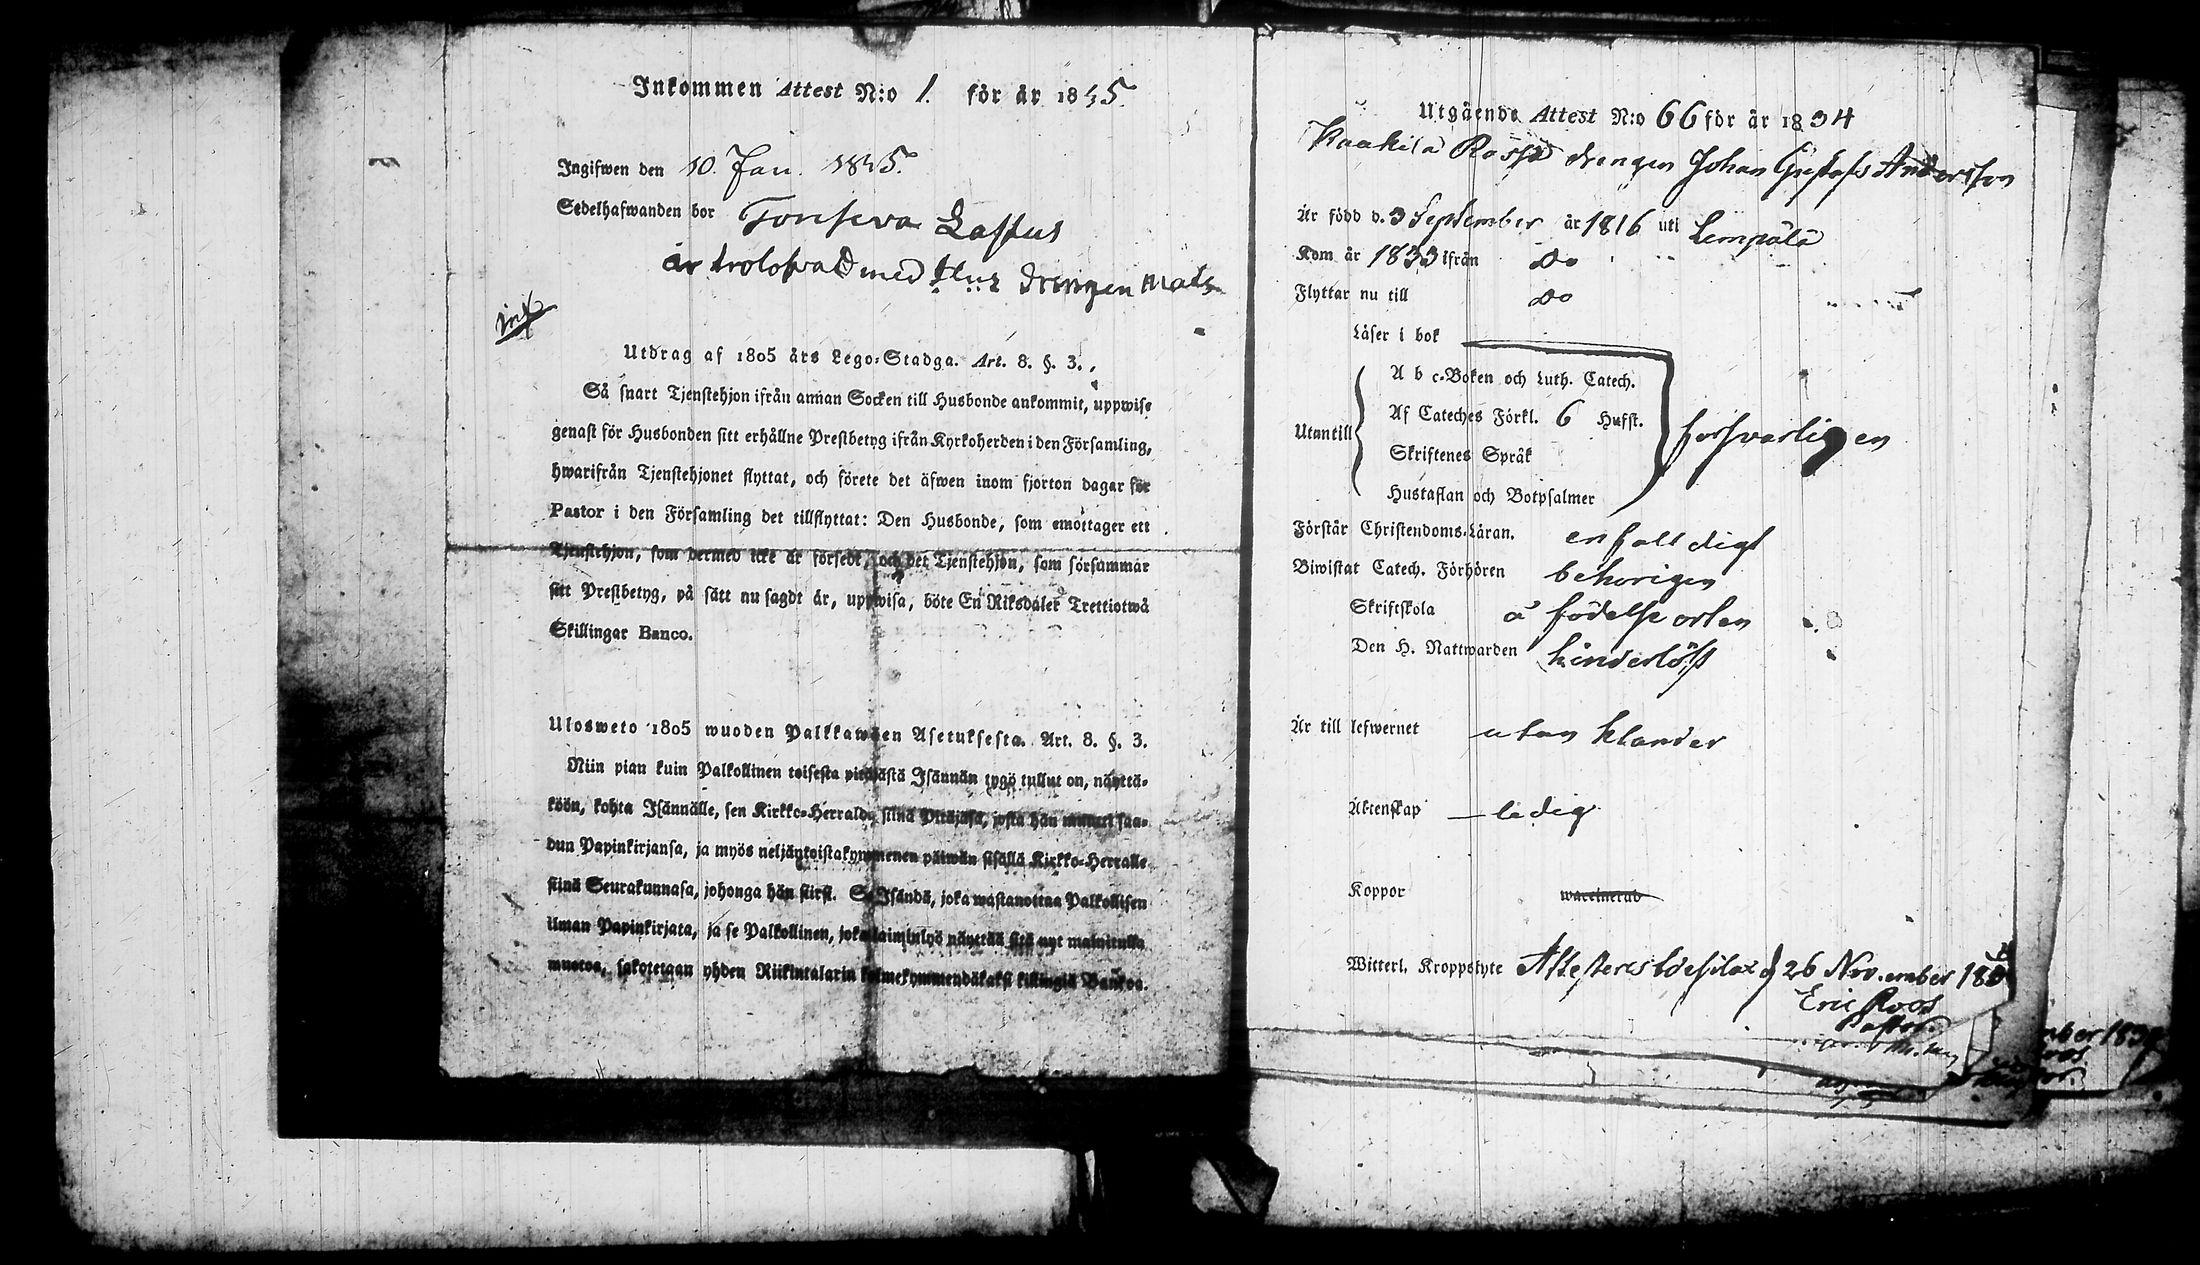 Inkommen Attest N:o 1. för år 1835.
Ingifwen den 10. Jan. 1835.
Sedelhafwanden bor Lastus
är trolofwad med drengen Mats
inf
Utdrag af 1805 års Lego-Stadga. Art. 8. §. 3.
Så snart Tjenstehjon ifrån annan Socken till Husbonde ankommit, uppwise
genast för Husbonden sitt erhållne Prestbetyg ifrån Kyrkoherden i den Församling,
hwarifrån Tjenstehjonet flyttat, och förete det äfwen inom fjorton dagar för
Pastor i den Församling det tillflyttat: Den Husbonde, som emottager ett
Tjenstehjon, som dermed icke är försedt, och det Tjenstehjon, som försummar
sitt Prestbetyg, på sätt nu sagdt är, uppwisa, böte En Riksdaler Trettiotwå
Skillingar Banco.
Ulosweto 1805 wuoden Palkkawäen Asetuksesta. Art. 8. §. 3.
Niin pian kuin Palkollinen toisesta pitäjästä Isännän tygö tullut on, näyttä-
köön, kohta Isännälle, sen Kirkko-Herralda siinä Pitäjäsä, josta hän muutti saa-
dun Papinkirjansa, ja myös neljäntoistakymmenen päiwän sisällä Kirkko-Herralle
siinä Seurakunnasa, johonga hän siirsi. Se Isändä, joka wastanottaa Palkollisen
ilman Papinkirjata, ja se Palkollinen, joka laiminlyö näyttää sitä nyt mainitulla
muotoa, sakotetaan yhden Riikintalarin kolmekymmendäkaksi killingiä Bankoa.
Utgående Attest N:o 66 för år 1834
Kaakila Rossi drengen Johan Gustafs Andersson
Är född d. 3 September år 1816 uti Lempälä
Kom år 1833 ifrån Do
Flyttar nu till Do
Läser i bok
A b c-Boken och Luth. Catech.
Utantill Af Cateches Förkl. 6 Hufst. forsvarligen
Skriftenes Språk
Hustaflan och Botpsalmer
Förstår Christendoms-Läran. enfalldigt
Biwistat Catech. Förhören behorigen
Skriftskola å födelse orten
Den H. Nattwarden hinderlöst
Är till lefwernet utan klander
Äktenskap ledig
Koppor waccinerad
Witterl. Kroppslyte Attesteras d 26 November 183
Eric Roos
Pastor.
mber 1834